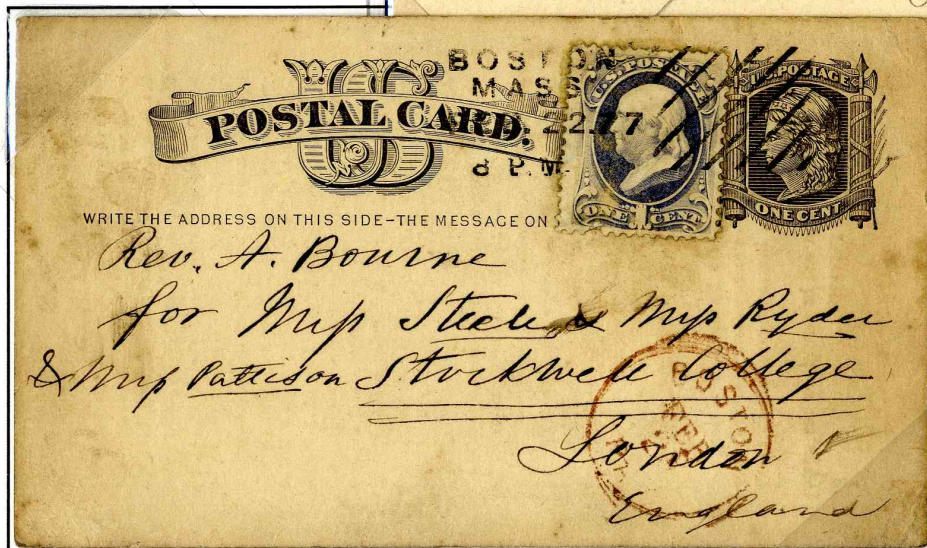 US
POSTAL CARD.
BOSTON
MASS
22.77
8 P.M.
U.S. POSTAGE
ONE 1 CENT
U.S. POSTAGE
ONE CENT
WRITE THE ADDRESS ON THIS SIDE-THE MESSAGE ON
Rev. A. Bourne
for Miss Steele & Miss Ryder
& Miss Pattison Stockwell College
London
England
BOSTON